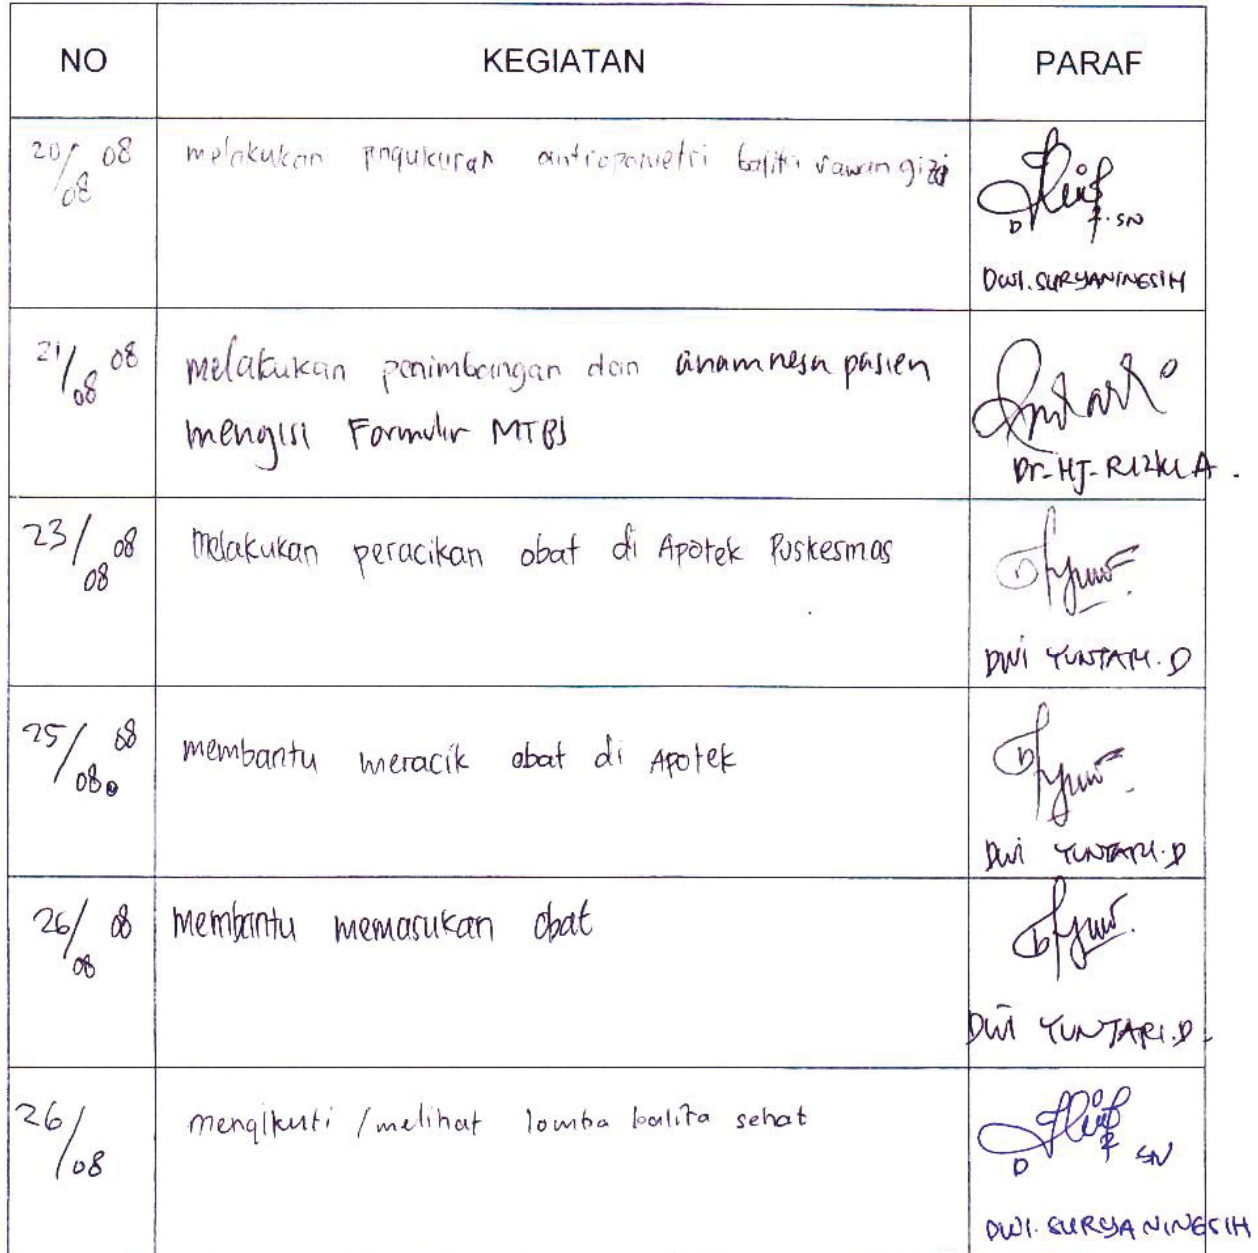 NO KEGIATAN PARAF
20/08 08 melakukan pngukuran antropometri balita rawan gizi
D F. SN
DWI. SURYANINGSIH
21/08 08 melakukan penimbangan dan anamnesa pasien
mengisi Formulir MTBS
Dr-HJ-RIZKI.A.
23/08 08 melakukan peracikan obat di Apotek Puskesmas
DWI YUNTARI.D
25/08 08 membantu meracik obat di Apotek
DWI YUNTARI.D
26/08 08 membantu memasukan obat
DWI YUNTARI.D.
26/08 mengikuti / melihat lomba balita sehat
D F SN
DWI. SURYANINGSIH